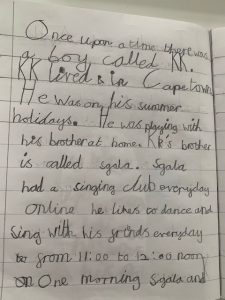 Once upon a time there was
a boy called KK.
KK lived in Capetown
He was on his summer
holidays. He was playing with
his brother at home. KK's brother
is called sgala. Sgala
had a singing club everyday
online he likes to dance and
sing with his frinds everyday
from 11:00 to 12:00 noon
One morning Sgala and